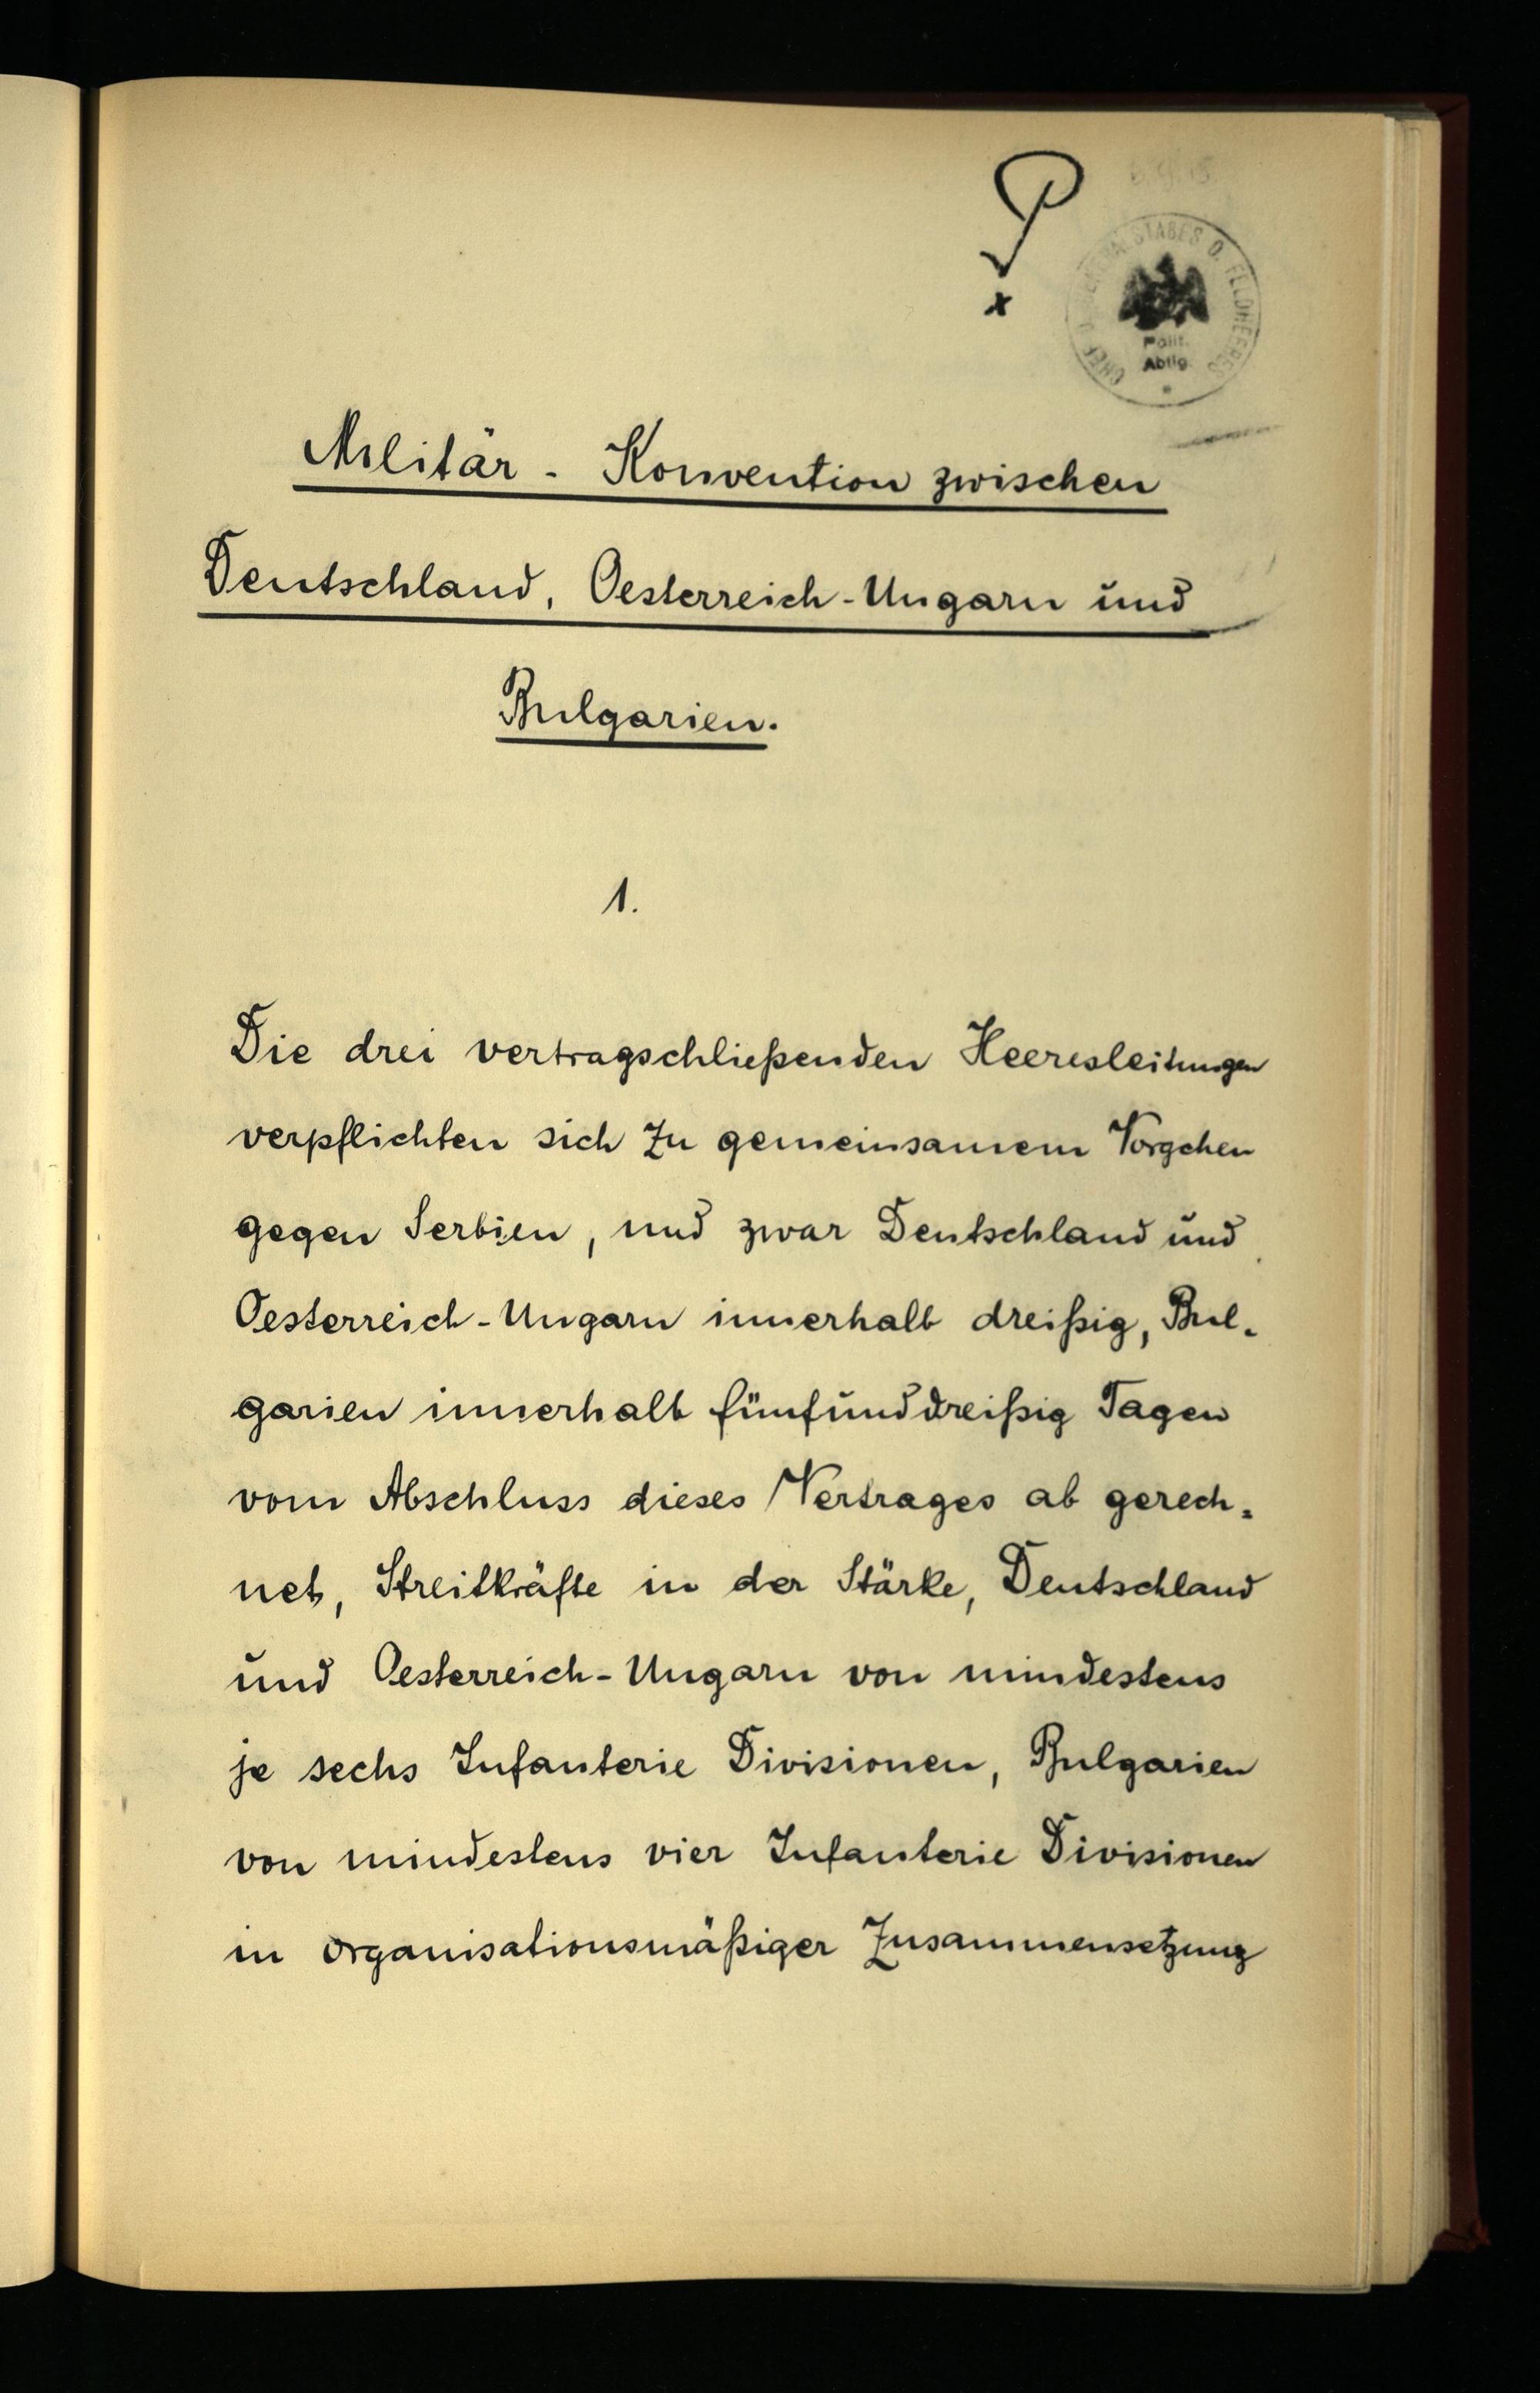 CHEF D. GENERALSTABES D. FELDHEERES
Polit.
Abtlg.
Militär - Konvention zwischen
Deutschland, Oesterreich-Ungarn und
Bulgarien.
1.
Die drei vertragschließenden Heeresleitungen
verpflichten sich zu gemeinsamem Vorgehen
gegen Serbien, und zwar Deutschland und
Oesterreich-Ungarn innerhalb dreißig, Bul-
garien innerhalb fünfunddreißig Tagen
vom Abschluss dieses Vertrages ab gerech-
net, Streitkräfte in der Stärke, Deutschland
und Oesterreich-Ungarn von mindestens
je sechs Infanterie Divisionen, Bulgarien
von mindestens vier Infanterie Divisionen
in organisationsmäßiger Zusammensetzung